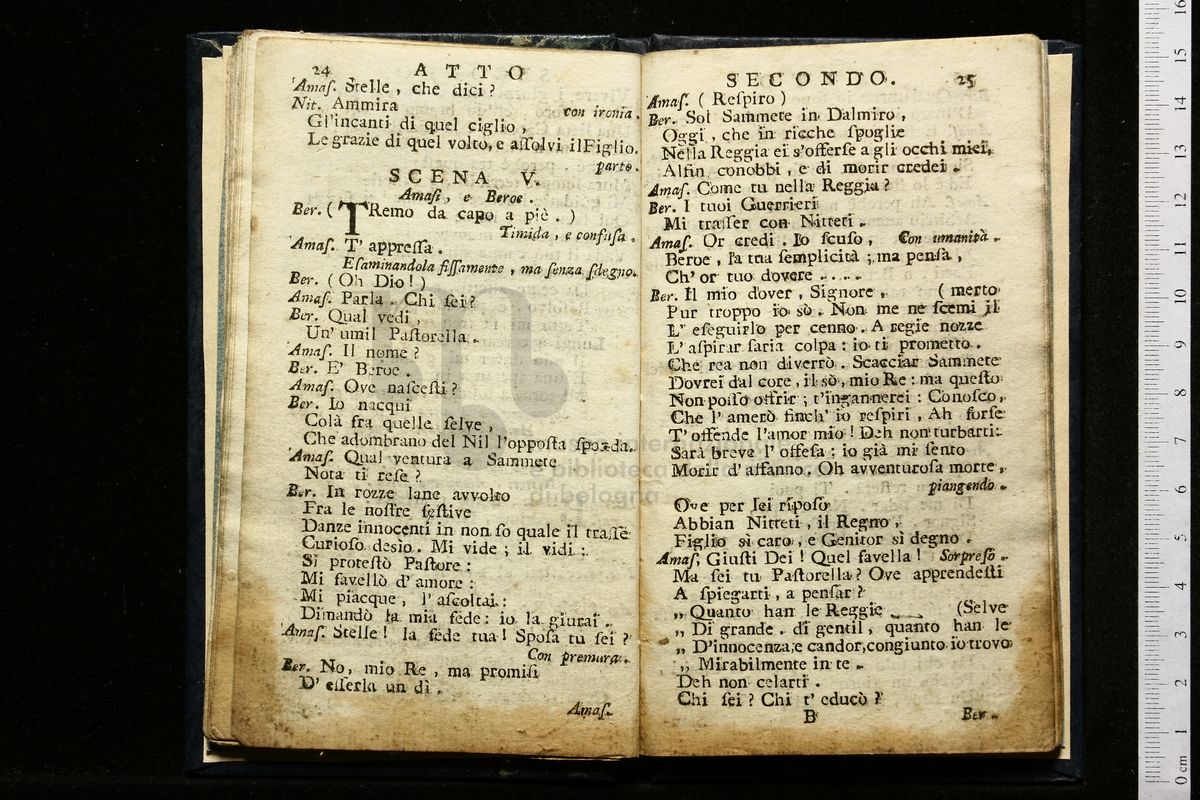 24 ATTO
Amaſ. Stelle, che dici?
Nit. Ammira con ironia.
Gl'incanti di quel ciglio,
Le grazie di quel volto, e aſſolvi il Figlio.
parte.
SCENA V.
Amaſi, e Beroe.
Ber. (TRemo da capo a piè.)
Timida, e confuſa.
Amaſ. T' appreſſa.
Eſaminandola fiſſamente, ma ſenza ſdegno.
Ber. (Oh Dio!)
Amaſ. Parla. Chi ſei?
Ber. Qual vedi,
Un' umil Paſtorella.
Amaſ. Il nome?
Ber. E' Beroe.
Amaſ. Ove naſceſti?
Ber. Io nacqui
Colà fra quelle ſelve,
Che adombrano del Nil l'oppoſta ſponda.
Amaſ. Qual ventura a Sammete
Nota ti reſe?
Ber. In rozze lane avvolto
Fra le noſtre feſtive
Danze innocenti in non ſo quale il traſſe
Curioſo desìo. Mi vide; il vidi:
Si proteſtò Paſtore:
Mi favellò d' amore:
Mi piacque, l' aſcoltai:
Dimandò la mia fede: io la giurai.
Amaſ. Stelle! la fede tua! Spoſa tu ſei?
Con premura.
Ber. No, mio Re, ma promiſi
D' eſſerla un dì.
Amaſ.
SECONDO. 25
Amaſ. (Reſpiro)
Ber. Sol Sammete in Dalmiro,
Oggi, che in ricche ſpoglie
Nella Reggia ei s'offerſe a gli occhi miei,
Alfin conobbi, e di morir credei.
Amaſ. Come tu nella Reggia?
Ber. I tuoi Guerrieri
Mi traſſer con Nitteti.
Amaſ. Or credi. Io ſcuſo, Con umanità.
Beroe, la tua ſemplicità; ma penſa,
Ch' or tuo dovere .....
Ber. Il mio dover, Signore, (merto
Pur troppo io sò. Non me ne ſcemi il
L' eſeguirlo per cenno. A regie nozze
L' aſpirar ſaria colpa: io ti prometto.
Che rea non diverrò. Scacciar Sammete
Dovrei dal core, il sò, mio Re: ma queſto
Non poſſo offrir; t'ingannerei: Conoſco,
Che l' amerò finch' io reſpiri, Ah forſe
T' offende l'amor mio! Deh non turbarti:
Sarà breve l' offeſa: io già mi ſento
Morir d' affanno. Oh avventuroſa morte,
piangendo.
Ove per ſei ripoſo
Abbian Nitteti, il Regno,
Figlio sì caro, e Genitor sì degno.
Amaſ. Giuſti Dei! Quel favella! Sorpreſo.
Ma ſei tu Paſtorella? Ove apprendeſti
A ſpiegarti, a penſar?
„ Quanto han le Reggie (Selve
„ Di grande. di gentil, quanto han le
„ D'innocenza, e candor, congiunto io trovo
„ Mirabilmente in te.
Deh non celarti.
Chi ſei? Chi t' educò?
B Ber.